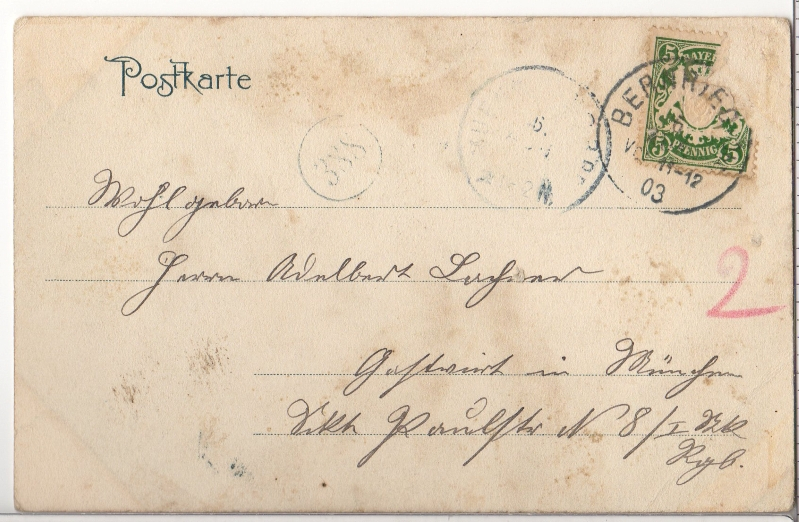 Postkarte
BAYERN
5
5 PFENNIG 5
BERNRIED
11-12
03
388
2
Wohlgeboren
Herrn Adelbert Lachner
Gastwirt in München
Paulstr N 8/I
Rgb.